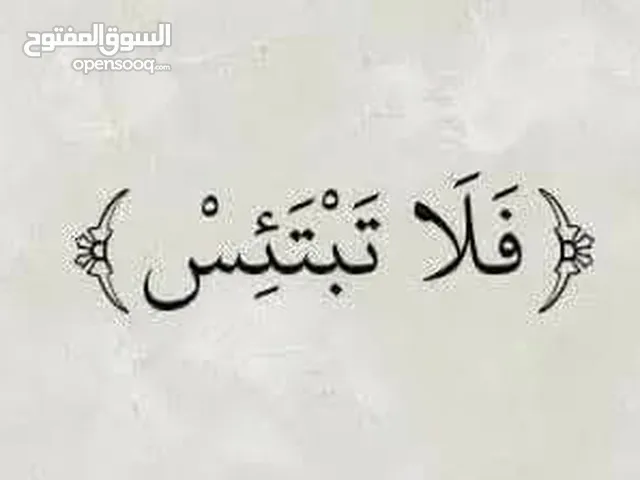 السوق المفتوح
opensooq.com
﴿فَلَا تَبْتَئِسْ﴾